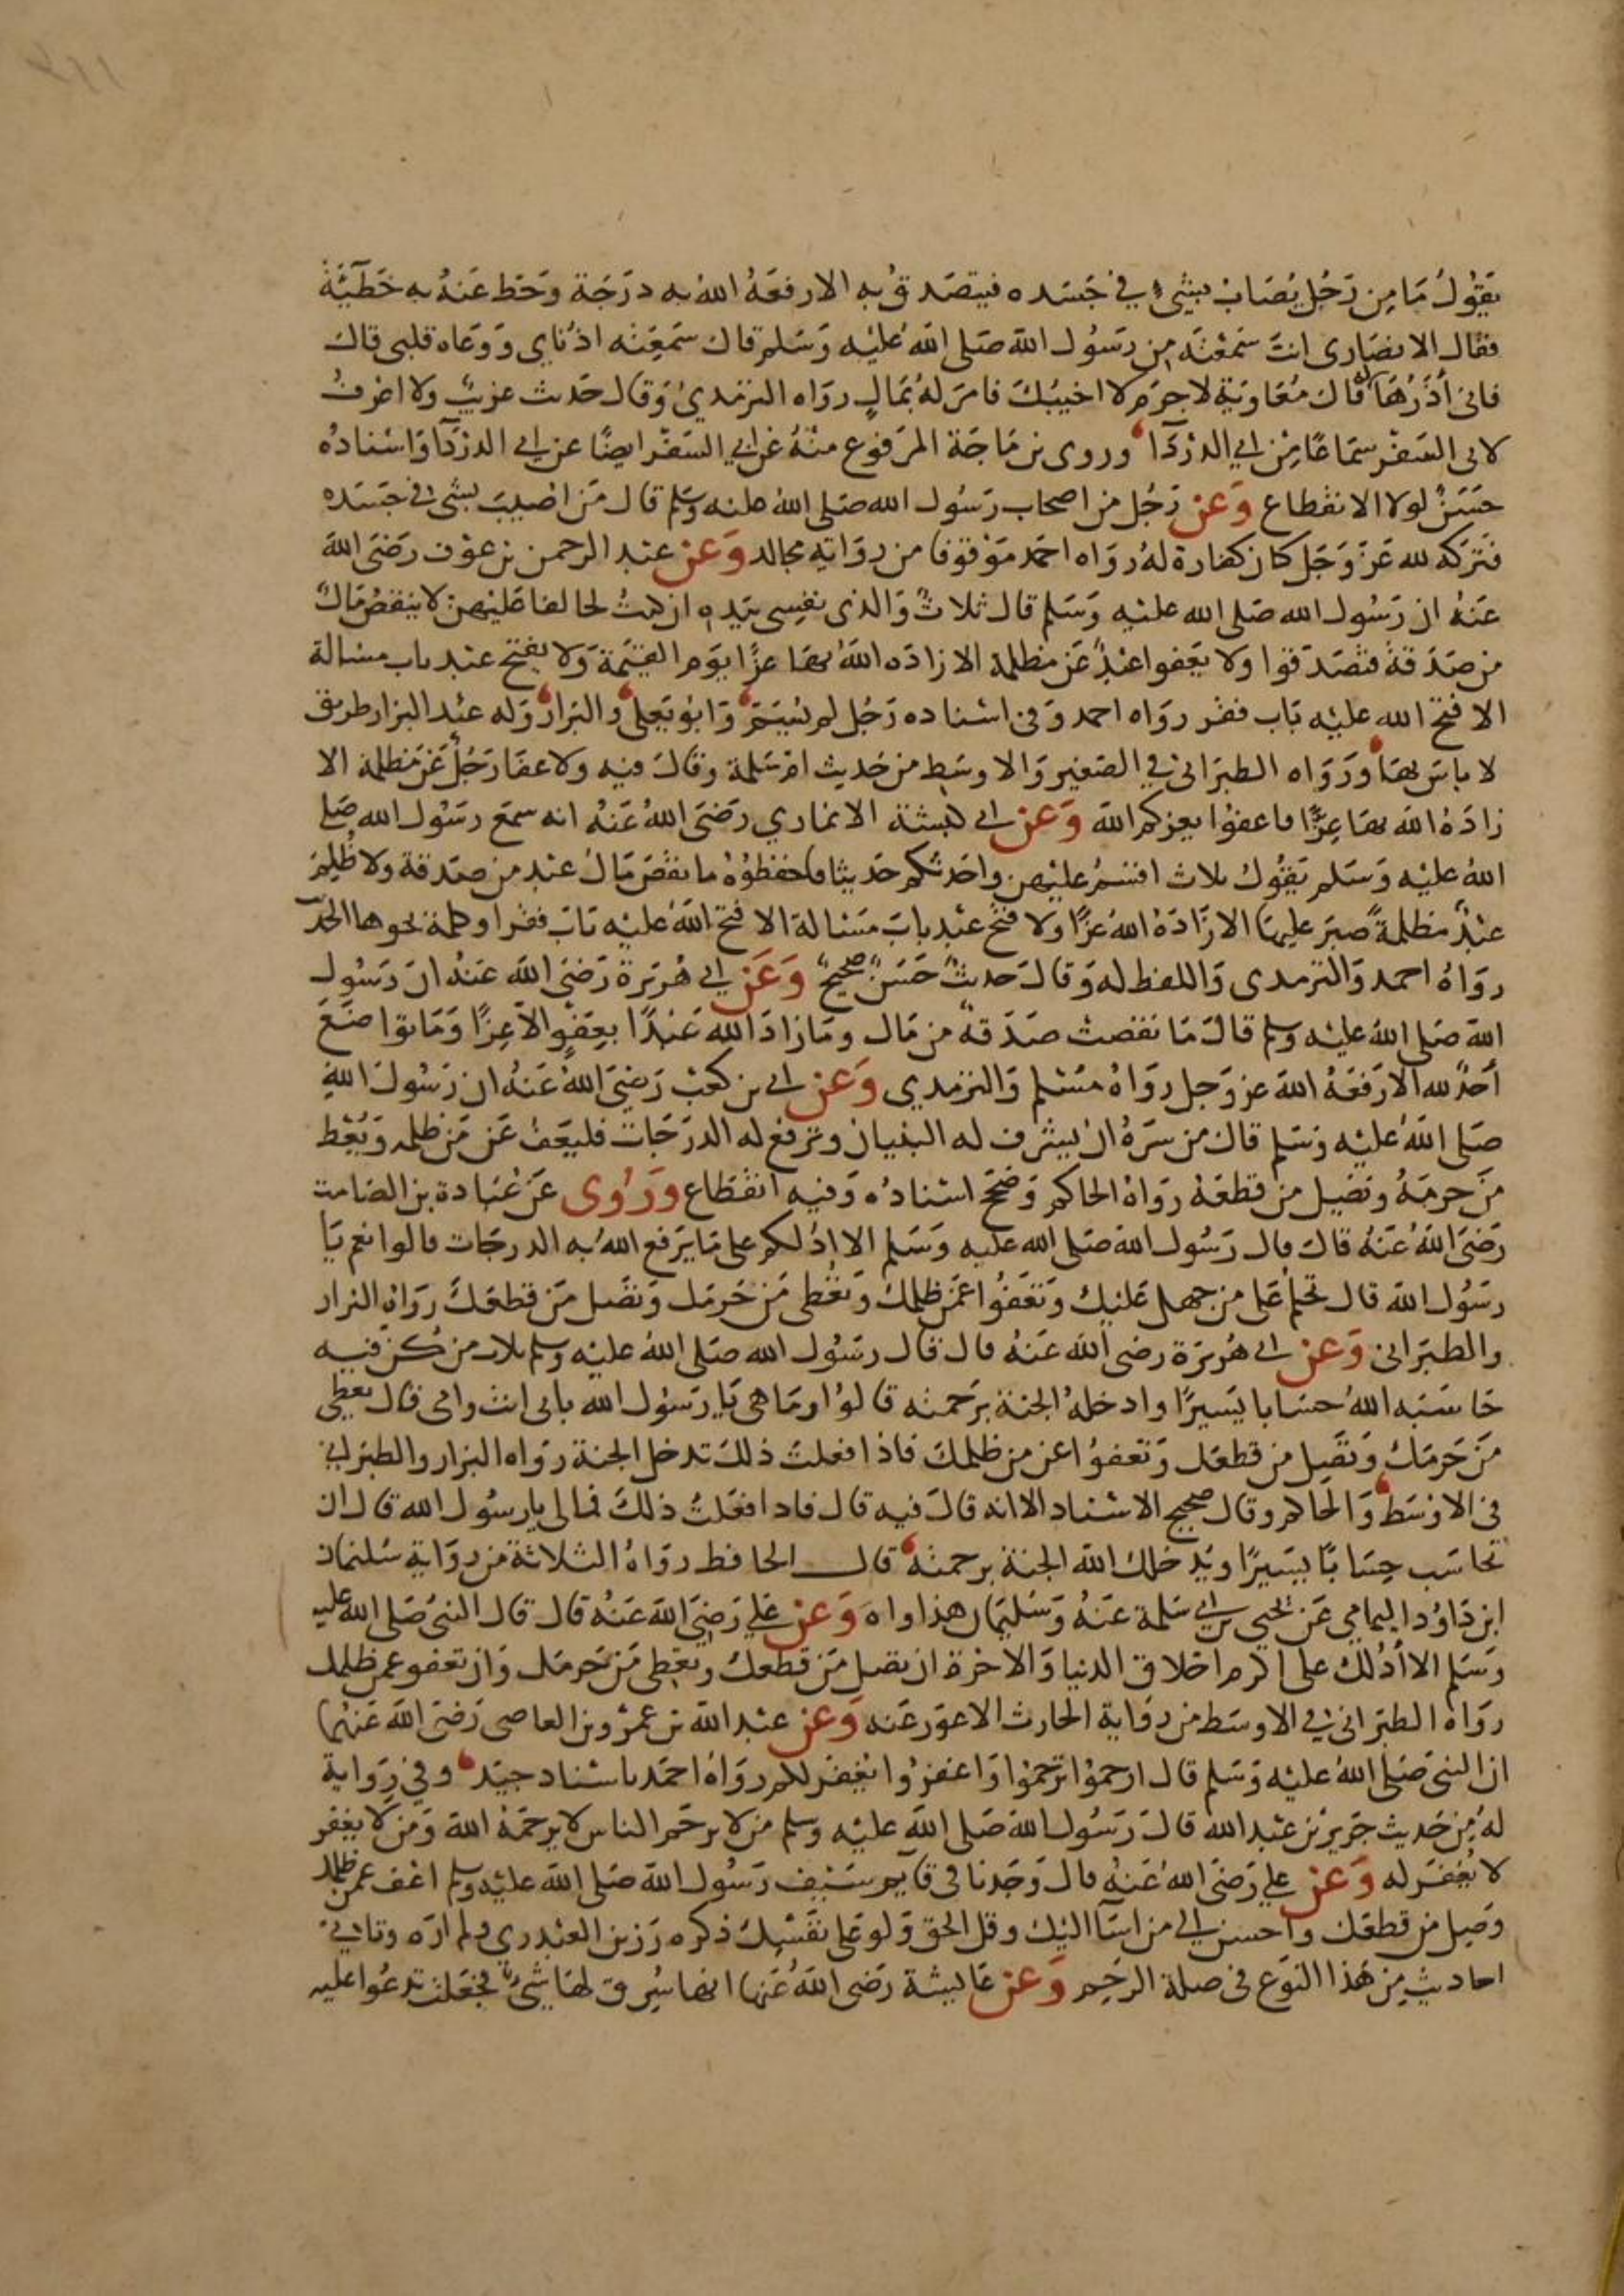 يقول ما من رجل يصاب بشيء في جسده فيتصدق به الا رفعه الله به درجة وحط عنه به خطيئة
فقال الانصاري انت سمعته من رسول الله صلى الله عليه وسلم قال سمعته اذناي ووعاه قلبي قال
فاني أذرها له قال معاوية لا جرم لا اخيبك فامر له بمال رواه الترمذي وقال حديث غريب ولا اعرف
لابي السفر سماعا من ابي الدردآ وروى بن ماجة المرفوع منه عن ابي السفر ايضا عن ابي الدردآ واسناده
حسن لولا الانقطاع وعن رجل من اصحاب رسول الله صلى الله عليه وسلم قال من اصيب بشي في جسده
فتركه لله عز وجل كان كفارة له رواه احمد موقوفا من رواته مجالد وعن عبد الرحمن بن عوف رضى الله
عنه ان رسول الله صلى الله عليه وسلم قال ثلاث والذي نفسي بيده ان كنت لحالفا عليهن لا ينقص مال
من صدقة فتصدقوا ولا يعفوا عبد عن مظلمة الا زاده الله بها عزا يوم القيمة ولا يفتح عبد باب مسالة
الا فتح الله عليه باب فقر رواه احمد وفي اسناده رجل لم يسم وابو يعلى والبزار وله عند البزار طريق
لا باس بها ورواه الطبراني في الصغير والاوسط من حديث ام سلمة وقال فيه ولا عفا رجل عن مظلمة الا
زاده الله بها عزا فاعفوا يعزكم الله وعن ابي كبشة الانماري رضى الله عنه انه سمع رسول الله صلى
الله عليه وسلم يقول ثلاث اقسم عليهن واحدثكم حديثا فاحفظوه ما نقص مال عبد من صدقة ولا ظلم
عبد مظلمة صبر عليها الا زاده الله عزا ولا فتح عبد باب مسالة الا فتح الله عليه باب فقر او كلمة نحوها الحديث
رواه احمد والترمذي واللفظ له وقال حديث حسن صحيح وعن ابي هريرة رضى الله عنه ان رسول
الله صلى الله عليه وسلم قال ما نقصت صدقة من مال وما زاد الله عبدا بعفو الا عزا وما تواضع
أحد لله الا رفعه الله عز وجل رواه مسلم والترمذي وعن ابي بن كعب رضى الله عنه ان رسول الله
صلى الله عليه وسلم قال من سره ان يشرف له البنيان وترفع له الدرجات فليعف عن من ظلمه ويعط
من حرمه ويصل من قطعه رواه الحاكم وصحح اسناده وفيه انقطاع وروى عن عبادة بن الصامت
رضى الله عنه قال قال رسول الله صلى الله عليه وسلم الا ادلكم على ما يرفع الله به الدرجات قالوا نعم يا
رسول الله قال تحلم على من جهل عليك وتعفوا عمن ظلمك وتعطى من حرمك وتصل من قطعك رواه البزار
والطبراني وعن ابي هريرة رضى الله عنه قال قال رسول الله صلى الله عليه وسلم ثلاث من كن فيه
حاسبه الله حسابا يسيرا وادخله الجنة برحمته قالوا وما هي يا رسول الله بابي انت وامي قال تعطي
من حرمك وتصل من قطعك وتعفوا عن من ظلمك فاذا فعلت ذلك تدخل الجنة رواه البزار والطبراني
في الاوسط والحاكم وقال صحيح الاسناد الا انه قال فيه قال فاذا فعلت ذلك فما لى يا رسول الله قال ان
تحاسب حسابا يسيرا ويدخلك الله الجنة برحمته قال الحافظ رواه الثلاثة من رواية سليمان
ابن داود اليمامي عن يحيى بن ابي سلمة عنه وسليمان هذا واه وعن علي رضى الله عنه قال قال النبي صلى الله عليه
وسلم الا أدلك على اكرم اخلاق الدنيا والاخرة ان تصل من قطعك وتعطى من حرمك وان تعفو عمن ظلمك
رواه الطبراني في الاوسط من رواية الحارث الاعور عنه وعن عبد الله بن عمرو بن العاصى رضى الله عنهما
ان النبي صلى الله عليه وسلم قال ارحموا ترحموا واغفروا يغفر لكم رواه احمد باسناد جيد وفي رواية
له من حديث جرير بن عبد الله قال رسول الله صلى الله عليه وسلم من لا يرحم الناس لا يرحمه الله ومن لا يغفر
لا يغفر له وعن علي رضى الله عنه قال وجدنا في قايم سيف رسول الله صلى الله عليه وسلم اعف عمن ظلمك
وصل من قطعك واحسن الى من اسآ اليك وقل الحق ولو على نفسك ذكره رزين العبدري ولم اره وتاتي
احاديث من هذا النوع في صلة الرحم وعن عايشة رضى الله عنها انها سرق لها شئ فجعلت تدعوا عليه